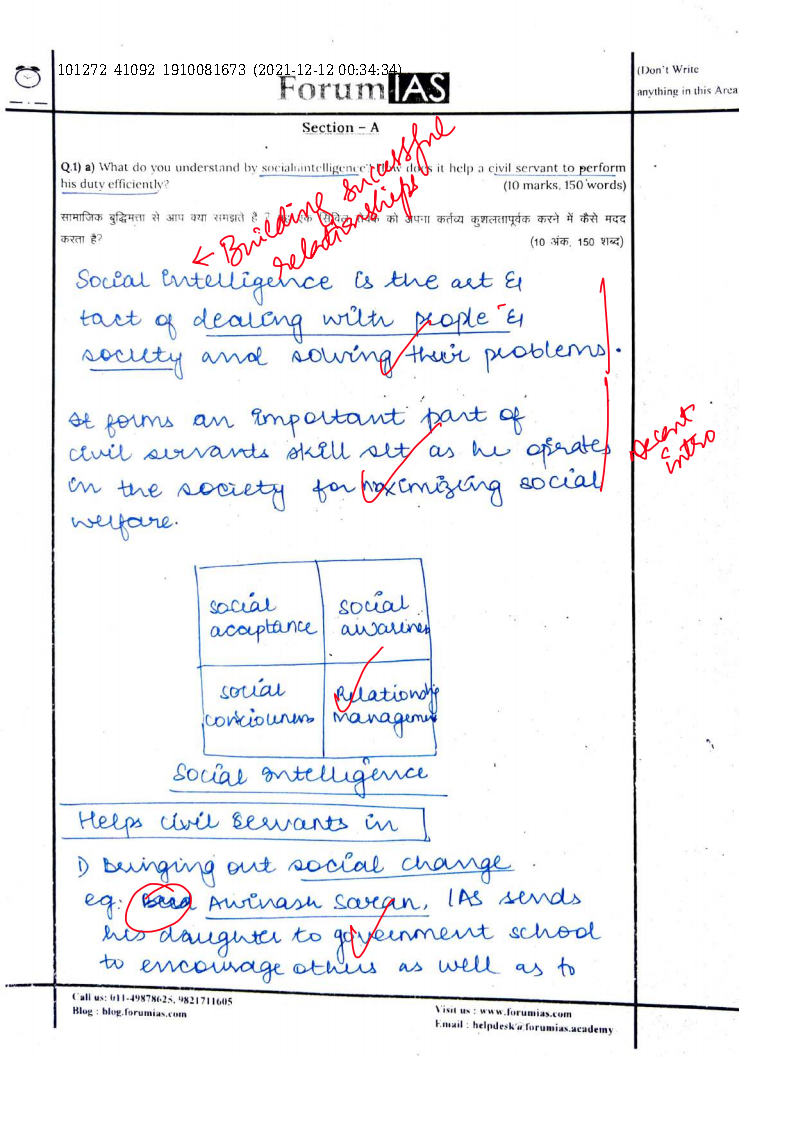 101272 41092 1910081673 (2021-12-12 00:34:34)
ForumIAS
(Don't Write
anything in this Area
Section – A
Q.1) a) What do you understand by social intelligence? How does it help a civil servant to perform
his duty efficiently?
(10 marks, 150 words)
सामाजिक बुद्धिमत्ता से आप क्या समझते हैं ? को अपना कर्तव्य कुशलतापूर्वक करने में कैसे मदद
करता है?
(10 अंक, 150 शब्द)
← Building successful
relationships
Social Intelligence is the art &
tact of dealing with people &
society and solving their problems.
It forms an important part of
civil servants skill set as he operates
in the society for maximizing social
welfare.
Decent
intro
social
acceptance
social
awareness
social
consciousness
Relationship
management
Social Intelligence
Helps civil servants in
1) Bringing out social change
eg: Awinash Saran, IAS sends
his daughter to government school
to encourage others as well as to
Call us: 011-49878625, 9821711605
Blog : blog.forumias.com
Visit us : www.forumias.com
Email : helpdesk@forumias.academy